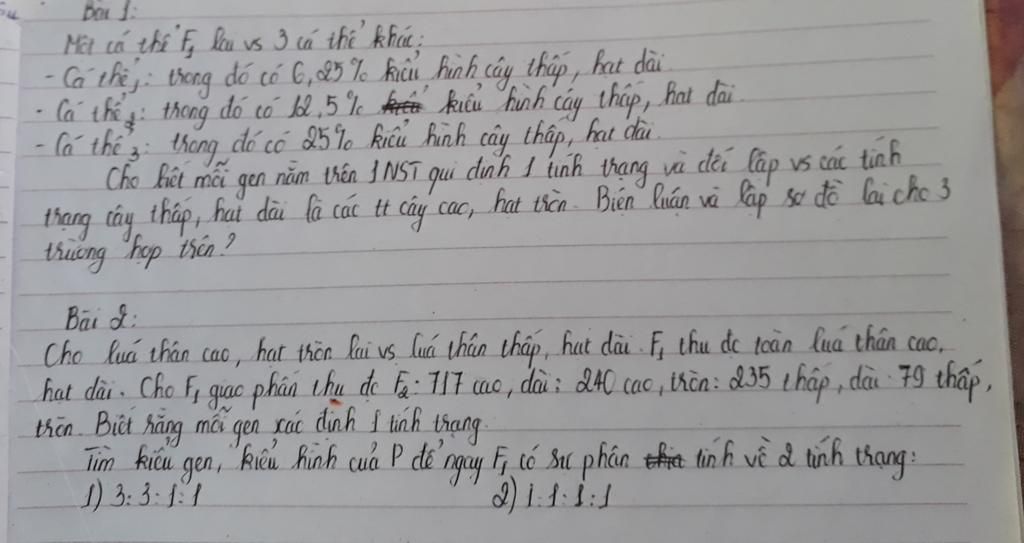 Bài 1:
Một cá thể F₁ lai vs 3 cá thể khác:
- Cá thể₁: trong đó có 6,25% kiểu hình cây thấp, hạt dài.
- Cá thể₂: trong đó có 12,5% kiểu hình cây thấp, hạt dài.
- Cá thể₃: trong đó có 25% kiểu hình cây thấp, hạt dài.
Cho biết mỗi gen nằm trên 1 NST qui định 1 tính trạng và đối lập vs các tính
trạng cây thấp, hạt dài là các tt cây cao, hạt tròn. Biện luận và lập sơ đồ lai cho 3
trường hợp trên?
Bài 2:
Cho luá thân cao, hạt tròn lai vs luá thân thấp, hạt dài. F₁ thu đc toàn luá thân cao,
hạt dài. Cho F₁ giao phấn thu đc F₂: 717 cao, dài: 240 cao, tròn: 235 thấp, dài: 79 thấp,
tròn. Biết rằng mỗi gen xác định 1 tính trạng.
Tìm kiểu gen, kiểu hình cuả P để ngay F₁ có sự phân tính về 2 tính trạng:
1) 3: 3: 1: 1 2) 1: 1: 1: 1